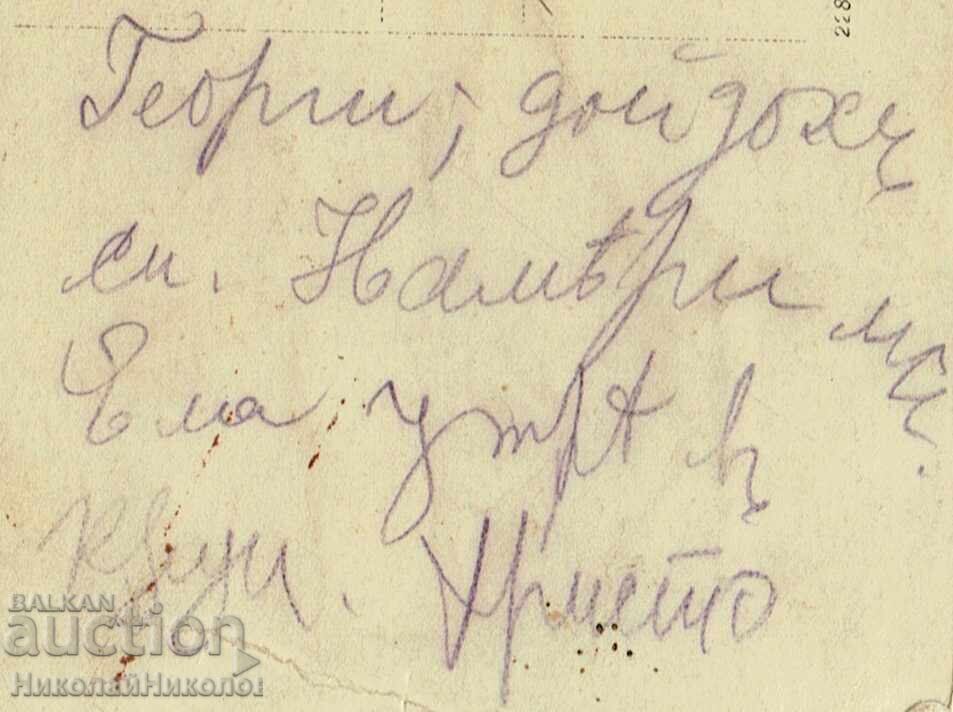 228
Георги, дойдохъ
си. Намѣри ме.
Ела утрѣ въ
Христо
BALKAN
auction
НиколайНиколов